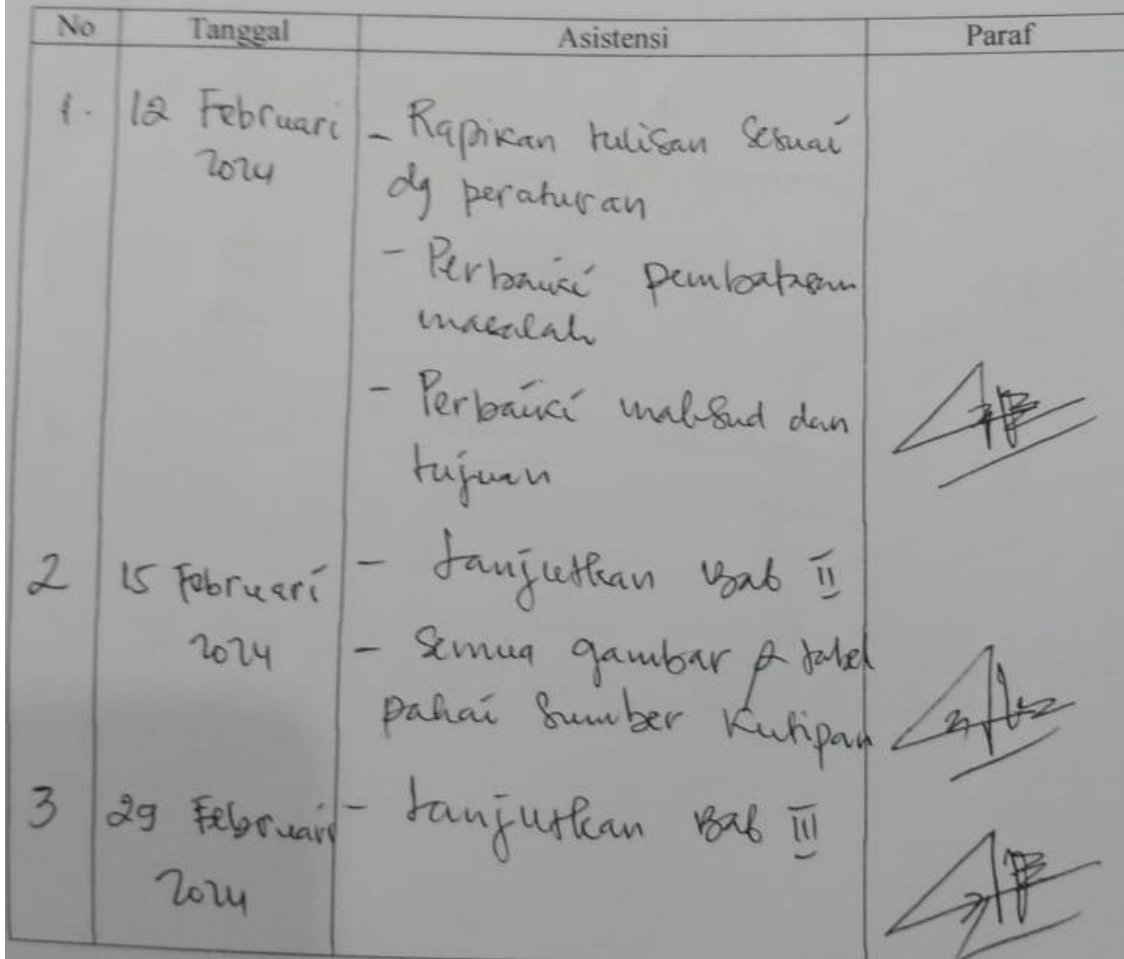 No Tanggal Asistensi Paraf
1. 12 Februari - Rapikan tulisan sesuai
2024 dg peraturan
- Perbaiki pembatasan
masalah
- Perbaiki maksud dan
tujuan
2 15 Februari - Lanjutkan Bab II
2024 - Semua gambar & tabel
pakai sumber kutipan
3 29 Februari - Lanjutkan Bab III
2024